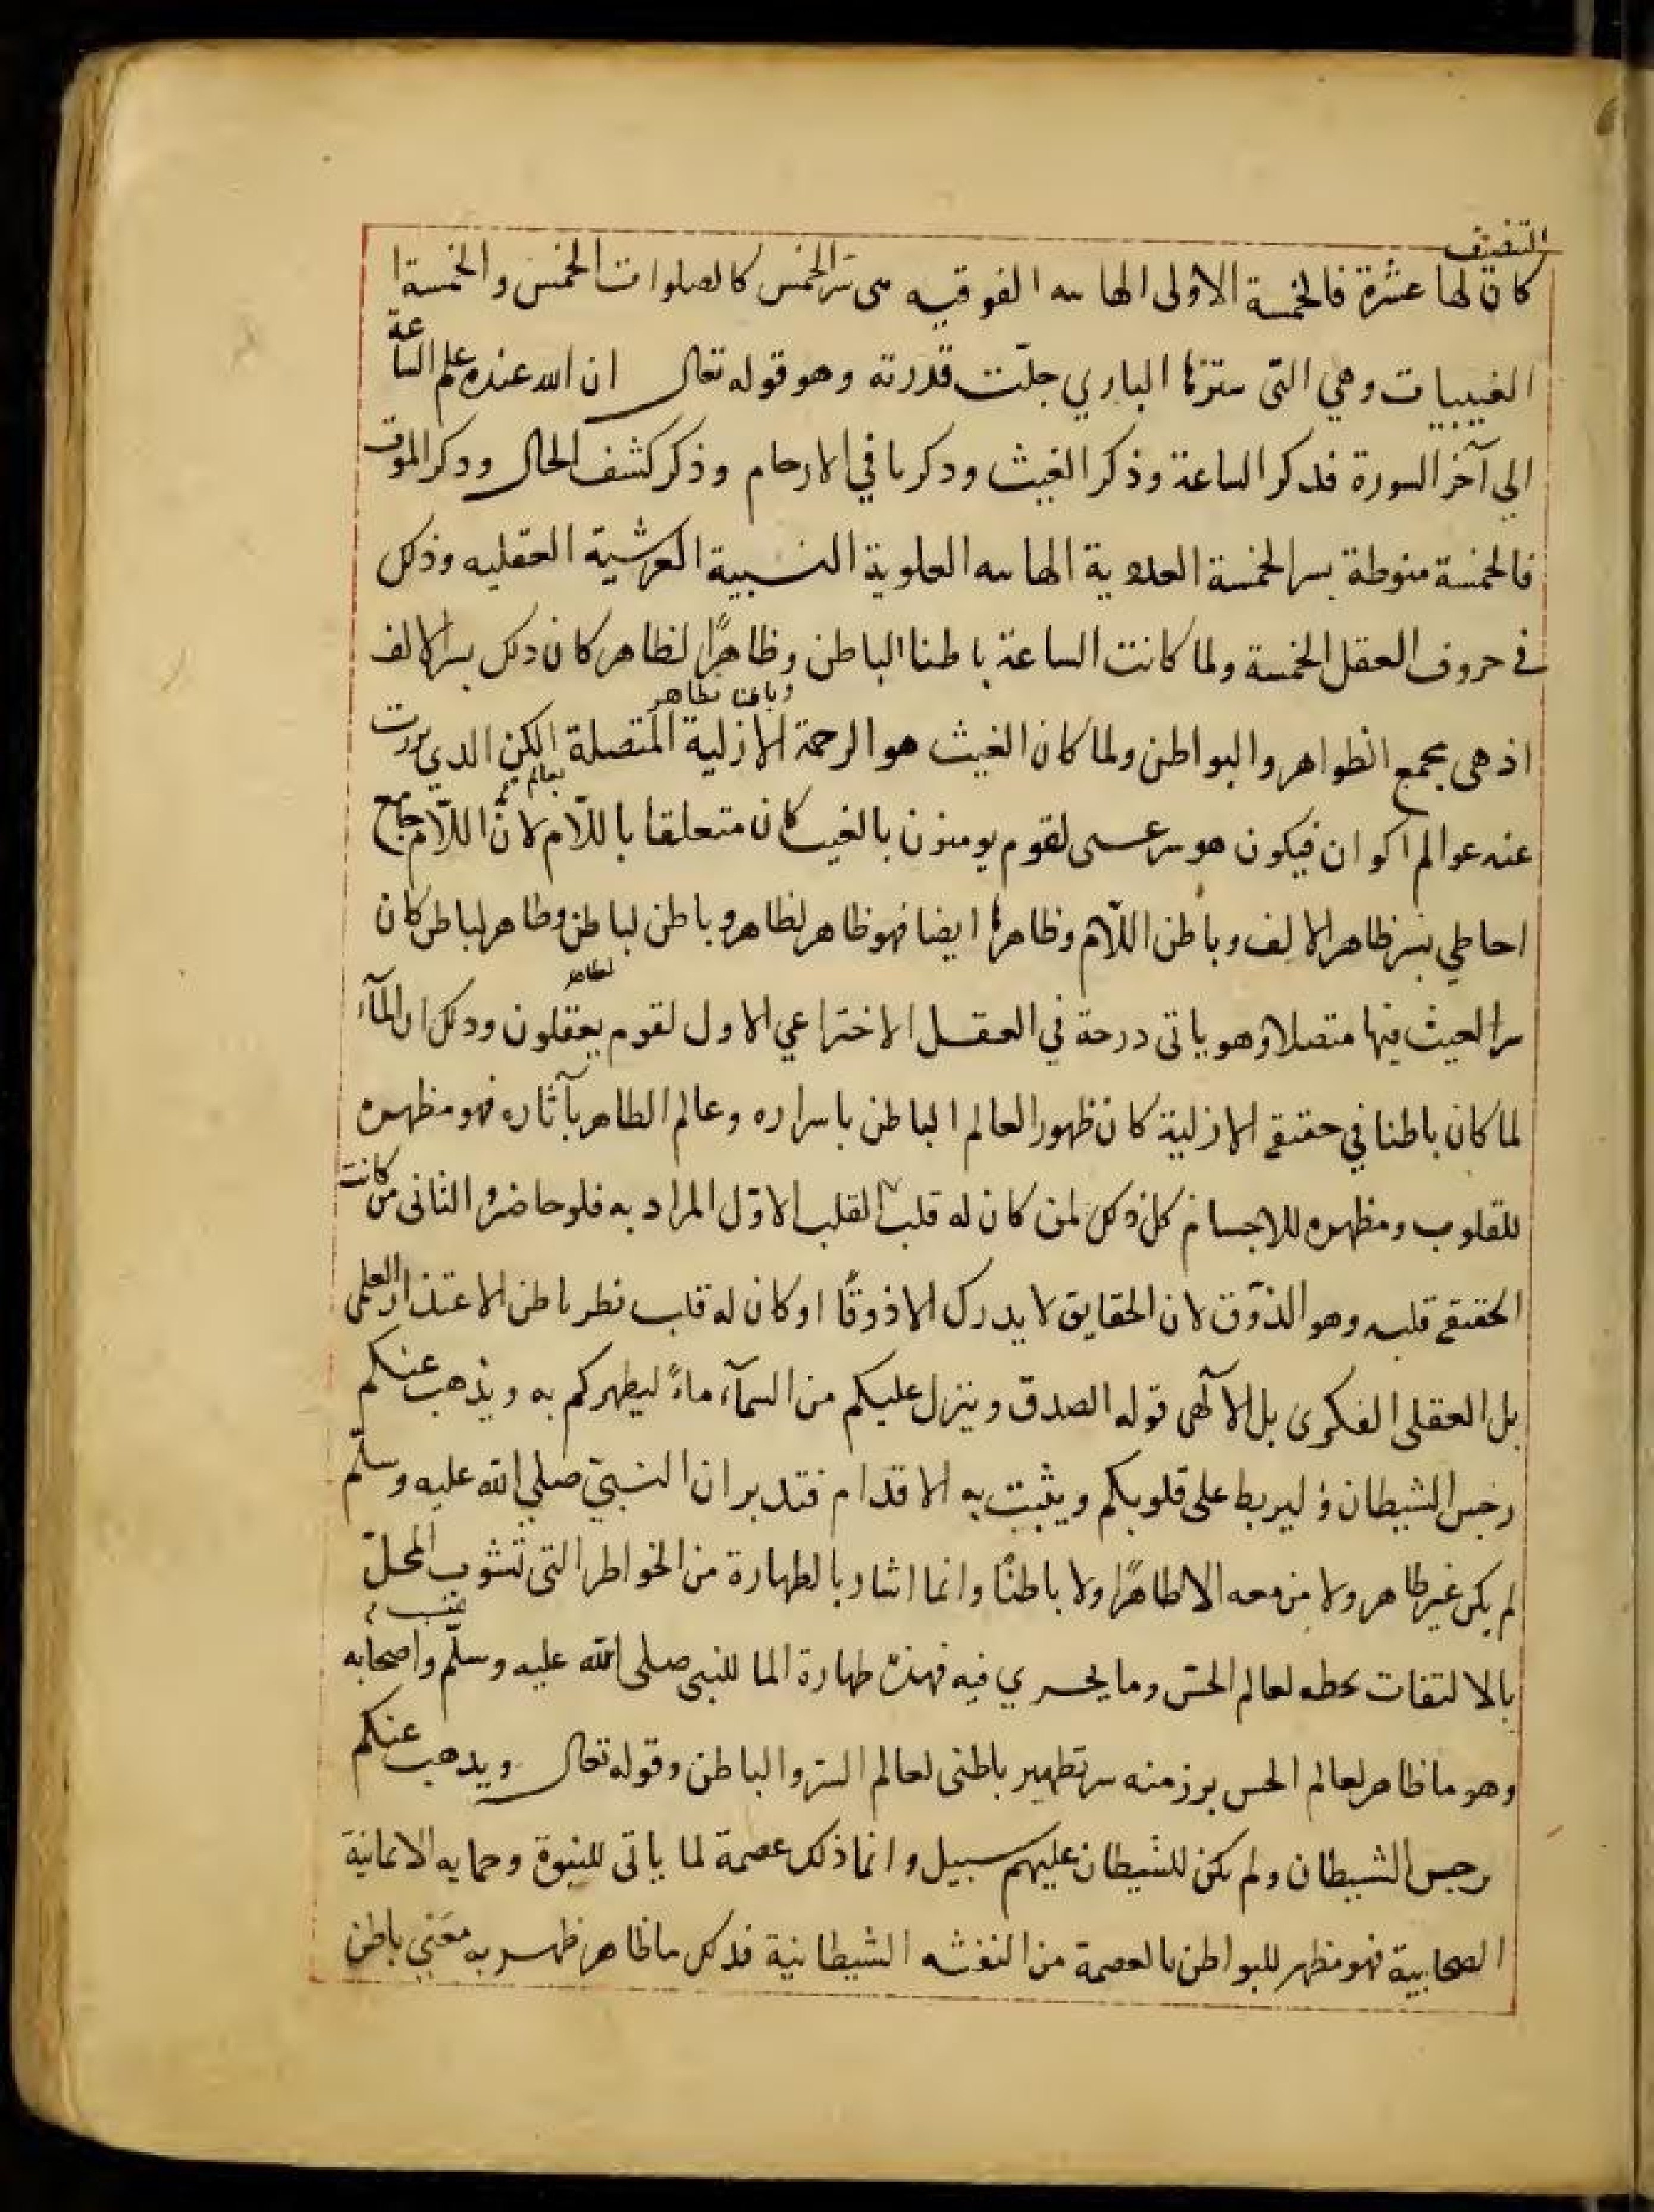 التضعيف
كان لها عشرة فالخمسة الاولى الهاىىه الفوقيه هى سر الخمس كالصلوات الخمس والخمسة ا
الغيبيات وهي التى سترها الباري جلّت قدرته وهو قوله تعالى ان الله عنده علم الساعة
الي آخر السورة فذكر الساعة وذكر الغيث ودكر ما في الارحام وذكر كشف الحال ودكر الموت
فالخمسة منوطة بسر الخمسة العددية الهاىىه العلوية النسبية العرشية العقليه وذلك
في حروف العقل الخمسة ولما كانت الساعة باطنا الباطن وظاهرًا لظاهر كان ذلك بسر الالف
وباطنا لظاهر
اذ هى مجمع الظواهر والبواطن ولما كان الغيث هو الرحمة الازلية المتصلة الكن الدي برزت
بعالم
عنه عوالم اكوان فيكون هو سر لقوم يومنون بالغيب كان متعلقا باللّام لانّ اللّام جامع
احاطي بسر ظاهر الالف وباطن اللّام وظاهرها ايضا فهو ظاهر لظاهر وباطن لباطن وظاهر لباطن كان
لظاهر
سر الغيث فيها متصلا وهو ياتى درجة في العقل الاختراعي الاول لقوم يعقلون ودلك ان المآء
لما كان باطنا في حقيقة الازلية كان ظهور العالم الباطن باسراره وعالم الظاهر بآثاره فهو مظهره
للقلوب ومظهره للاجسام كل ذلك لمن كان له قلب القلب الاوّل المراد به فلو حاضر الثانى من كانت
الحقيقة قلبه وهو الذوق لان الحقايق لا يدرك الا ذوقًا او كان له قلب نظر باطن الاعتذار العلمى
بل العقلى الفكرى بل الآلهى قوله الصدق وينزل عليكم من السمآء ماءً ليطهركم به ويذهب عنكم
رجس الشيطان وليربط على قلوبكم ويثبت به الاقدام فتدبر ان النبيّ صلي الله عليه وسلّم
لم يكن غير طاهر ولا من معه الا طاهرًا ولا باطنًا وانما اشار بالطهارة من الخواطر التى تشوب المحلّ
بالالتفات لحظه لعالم الحسّ وما يجرى فيه فهذه طهارة الما للنبي صلى الله عليه وسلّم واصحابه
وهو ما ظاهر لعالم الحس برز منه سر تطهير باطنى لعالم السر والباطن وقوله تعالى ويدهب عنكم
رجس الشيطان ولم يكن للشيطان عليهم سبيل وانما ذلك عصمة لما ياتى للنبوة وحمايه الايمانية
الصحابية فهو مظهر للبواطن بالعصمة من النفثه الشيطانية فذلك ما ظاهر ظهر به معنى باطن